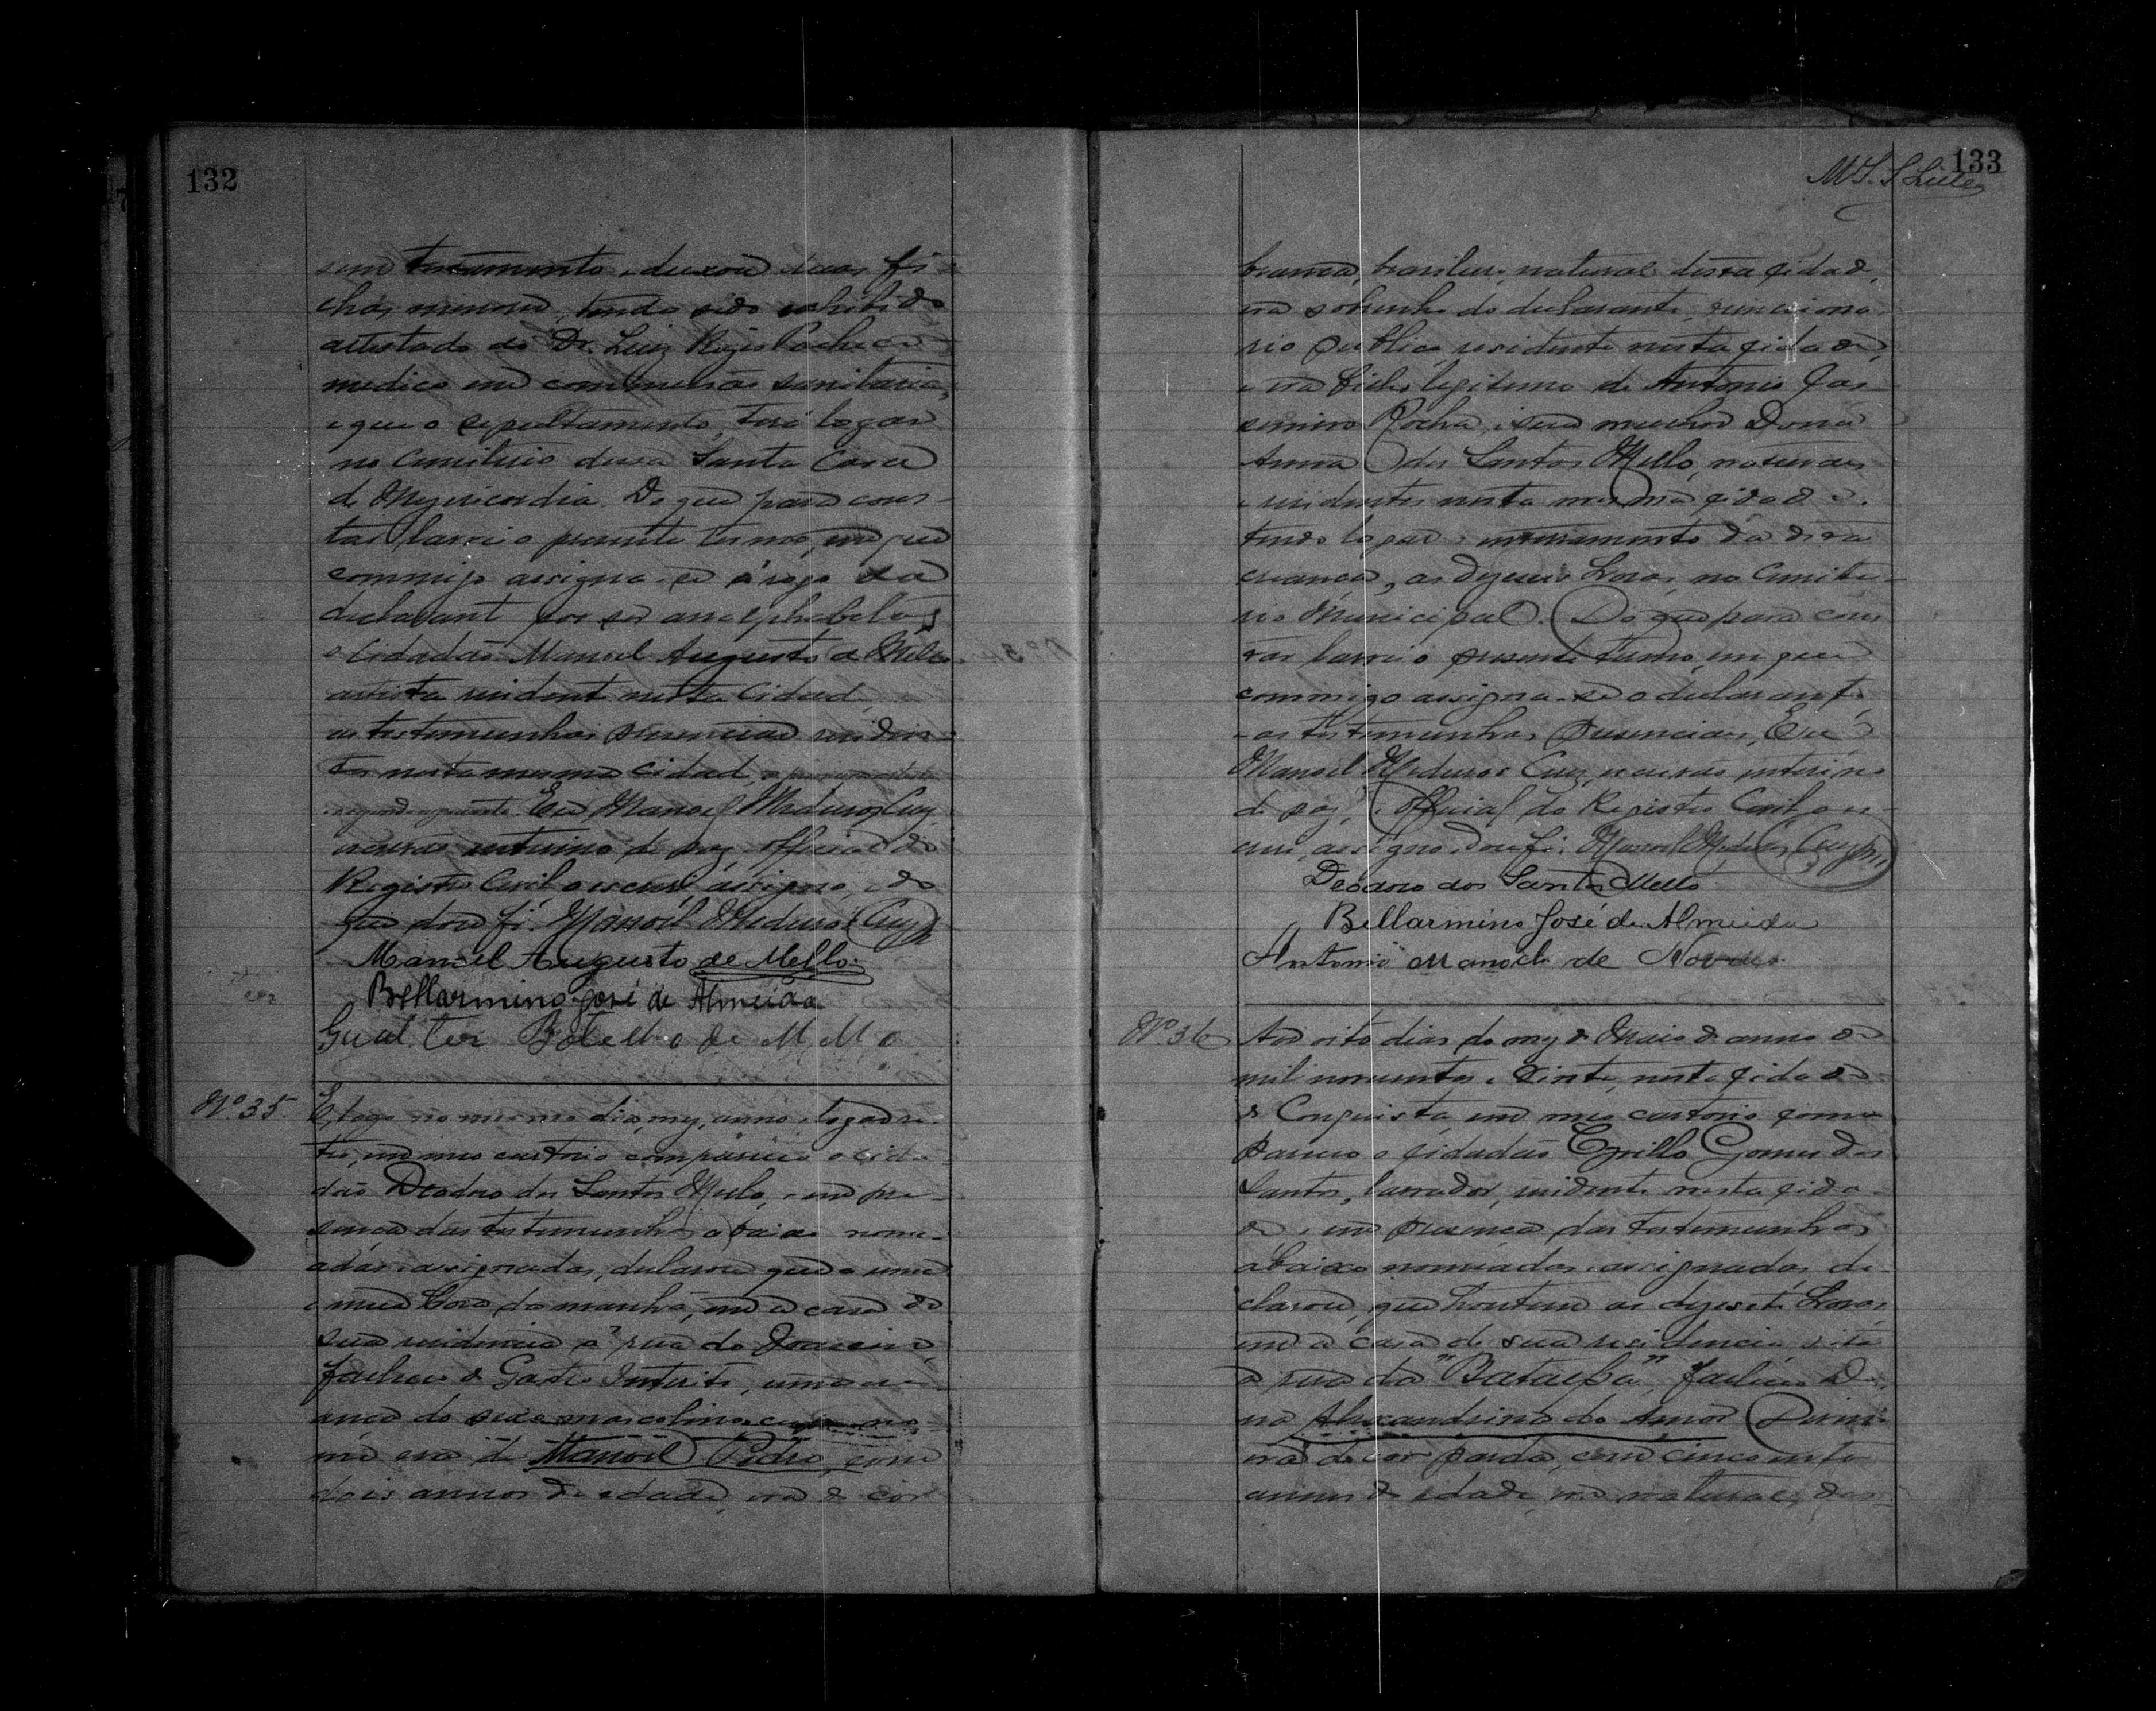 132
sem testamento e deixou duas fi-
lhas menores, tendo sido exhibido
attestado do Dr. Luiz Regis Pacheco
medico em commissão sanitaria,
e que o sepultamento, terá logar
no Cemiterio dessa Santa Casa
de Mizericordia. Do que para cons-
tar, lavrei o presente termo, em que
commigo assigna-se á rogo da
declarant por ser analphabeta
o Cidadão Manoel Augusto de Mello
artista resident nesta Cidad
as testemunhas presenciaes residen-
tes nesta mesma cidad,
Eu Manoel Medeiros Cruz
escrivão interino de paz, official do
Registro Civil o escrevi, assigno, do
que dou fé. Manoel Medeiros Cruz
Manoel Augusto de Mello
Bellarmino José de Almeida
Gualter Botelho de Mello
Nº 35
E, logo no mesmo dia, mez, anno e logar re-
tro, em meu cartorio compareceu o cida-
dão Deodoro dos Santos Mello, e em pre-
sença das testemunhas abaixo nome-
adas e assignadas, declarou que a uma
e meia hora da manhã, em a casa de
sua residencia á rua do
falleceu de Gastro Interite, uma cri-
ança do sexo masculino, cujo no-
me era de Manoel Pedro, com
dois annos de edade, era de côr
133
branca, brasileiro, natural dessa cidade,
era sobrinho do declarante, funcciona-
rio publico residente nesta cidade,
e era filho legitimo de Antonio Cas-
semiro Rocha, e sua mulher Dona
Anna dos Santos Mello, naturaes
e residentes nesta mesma cidade.
tendo logar o enterramento da dessa
creança, as dezeseis horas, no Cemite-
rio Municipal. Do que para cons-
tar lavrei o presente termo, em que
commigo assigna-se o declarante,
e as testemunhas presenciaes, Eu
Manoel Medeiros Cruz, escrivão interino
de paz, e official do Registro Civil o es-
crevi, assigno e dou fé. Manoel Medeiros Cruz
Deodoro dos Santos Mello
Bellarmino José de Almeida
Antonio Manoel de Novaes
Nº 36
Aos oito dias do mez de Maio do anno de
mil novecentos e vinte, nesta cidade
de Conquista, em meu cartorio com-
pareceu o cidadão Cyrillo Gomes dos
Santos, lavrador, residente nesta cida-
de, e em presença das testemunhas
abaixo nomeadas e assignadas, de-
clarou, que hontem as dezesete horas,
em a casa de sua residencia sita
a rua da "Batalha", falleceu Do-
na Alexandrina do Amor Divino
era de cor parda, com cincoenta
annos de edade, era natural, des-